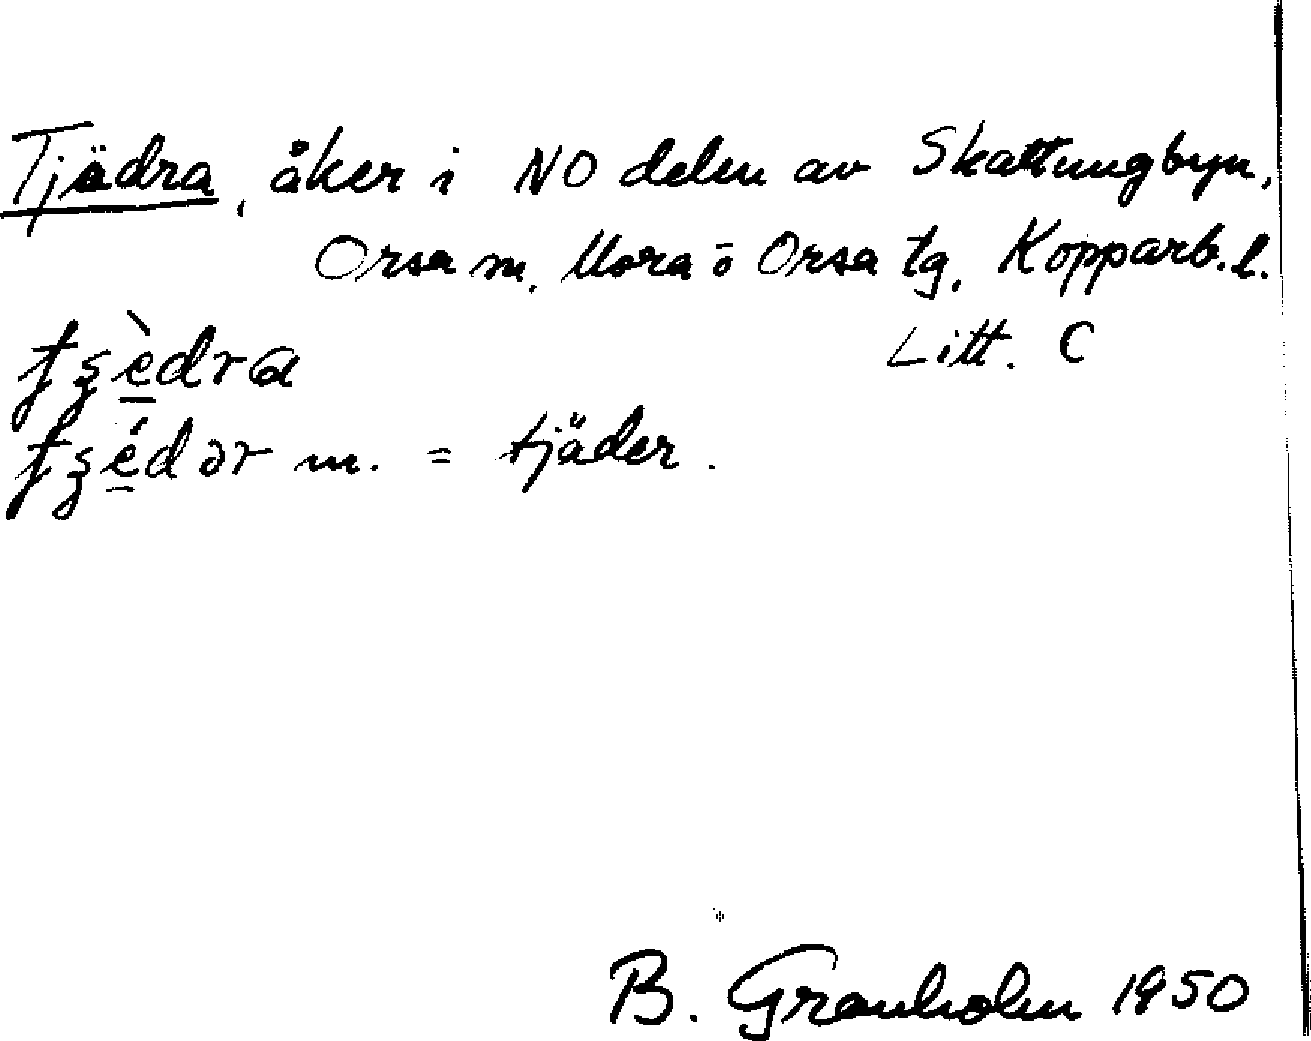 Tjädra, åker i NO delen av Skattungbyn,
Orsa m. Mora o Orsa tg, Kopparb. l.
Litt. C
m. = tjäder.
B. Granholm 1950